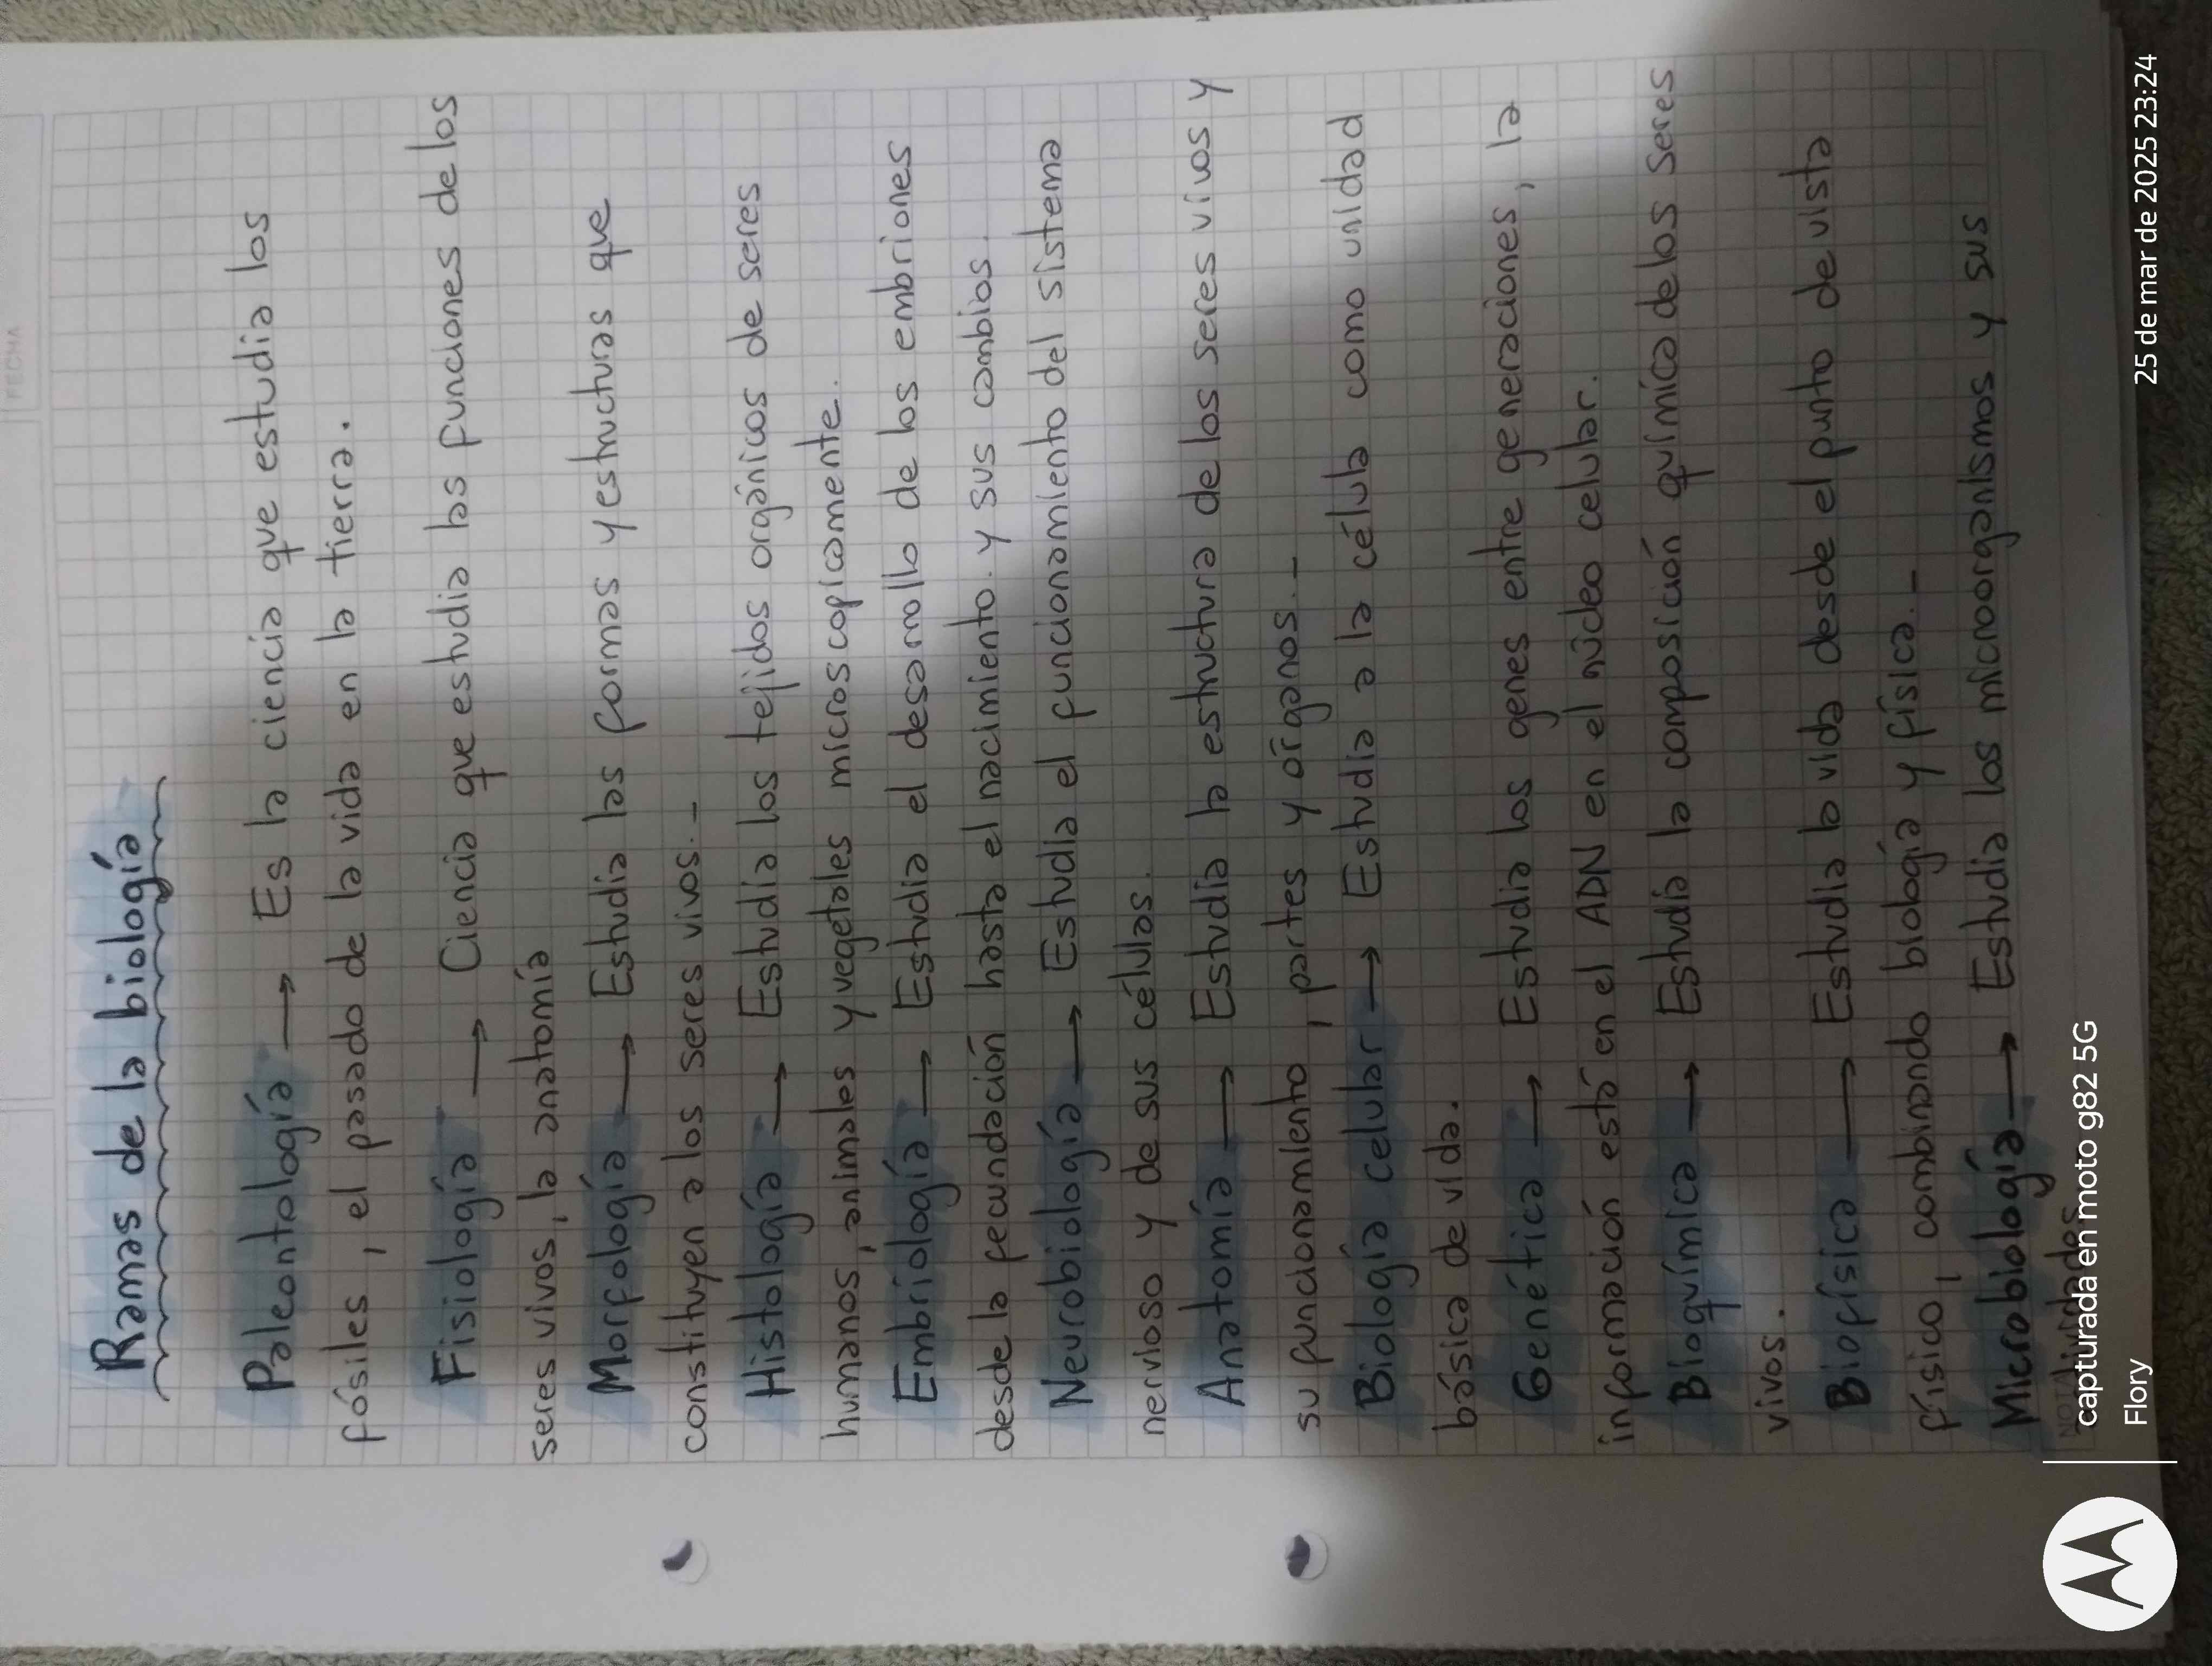 FECHA
Ramas de la biología
Paleontología → Es la ciencia que estudia los
fósiles, el pasado de la vida en la tierra.
Fisiología → Ciencia que estudia las funciones de los
seres vivos, la anatomía
Morfología → Estudia las formas y estructuras que
constituyen a los seres vivos.-
Histología → Estudia los tejidos orgánicos de seres
humanos, animales y vegetales microscopicamente.
Embriología → Estudia el desarrollo de los embriones
desde la fecundación hasta el nacimiento. y sus cambios.
Neurobiología → Estudia el funcionamiento del sistema
nervioso y de sus células.
Anatomía → Estudia la estructura de los seres vivos y
su funcionamiento, partes y órganos.-
Biología celular → Estudia a la célula como unidad
básica de vida.
Genética → Estudia los genes entre generaciones, la
información está en el ADN en el núcleo celular.
Bioquímica → Estudia la composición química de los seres
vivos.
Biofísica → Estudia la vida desde el punto de vista
físico, combinando biología y física.-
Microbiología → Estudia los microorganismos y sus
actividades
capturada en moto g82 5G
Flory
25 de mar de 2025 23:24